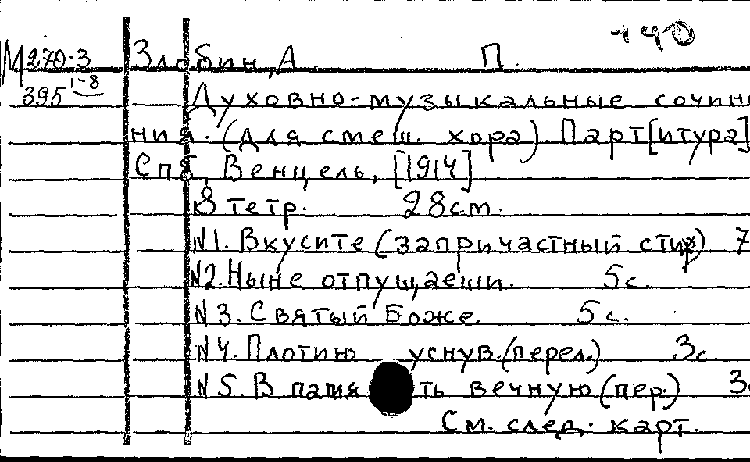 140
М 270-3 Злобин, А. П.
395 1-8 Духовно-музыкальные сочине
ния. (для смеш. хора) Парт[итура]
Спб, Венцель, [1914]
8 тетр. 28 см.
N1. Вкусите (запричастный стих) 7
N2. Ныне отпущаеши. 5 с.
N3. Святый Боже. 5 с.
N4. Плотию уснув. (перел.) 3 с
N5. В память вечную (пер.) 3
См. след. карт.